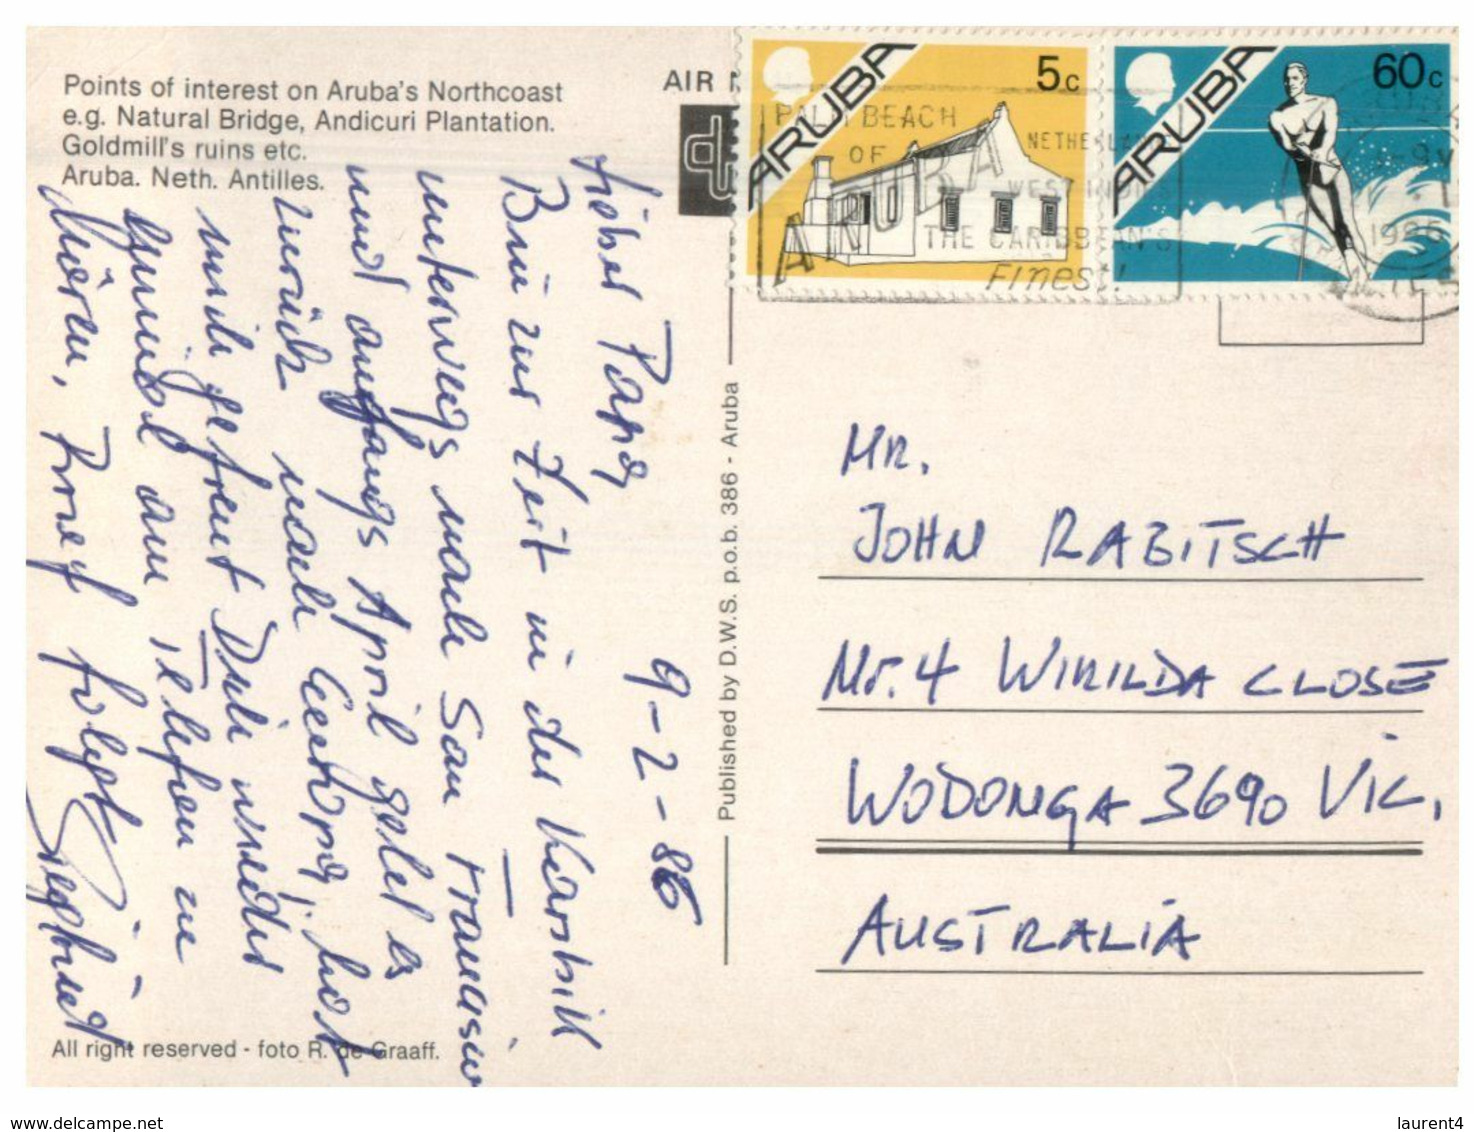 Points of interest on Aruba's Northcoast
e.g. Natural Bridge, Andicuri Plantation.
Goldmill's ruins etc.
Aruba. Neth. Antilles.
AIR
ARUBA
5c
ARUBA
60c
PALM BEACH
OF
ARUBA
NETHERLANDS
WEST INDIES
THE CARIBBEAN'S
Finest!
1986
9-2-86
Lieber Papa
Bin zur Zeit in der Karibik
unterwegs nach San Francisco
und anfangs April geht es
zurück nach
mich gefreut Dich wieder
einmal am Telefon zu
hören, Brief folgt
Published by D.W.S. p.o.b. 386 - Aruba
MR.
JOHN RABITSCH
Nr. 4 WIRILDA CLOSE
WODONGA 3690 VIC.
AUSTRALIA
All right reserved - foto R. de Graaff.
www.delcampe.net
laurent4